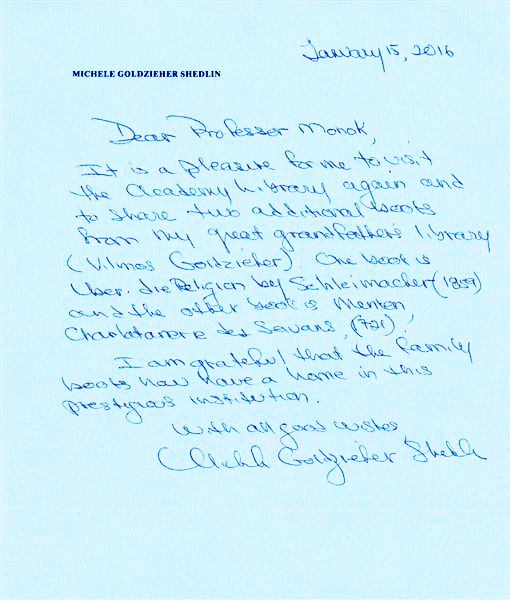 January 15, 2016
MICHELE GOLDZIEHER SHEDLIN
Dear Professor Monok,
It is a pleasure for me to visit
the Academy Library again and
to share two additional books
from my great grandfather's library
(Vilmos Goldzieher). One book is
Uber die Religion by Schleimacher (1859)
and the other book is Menken,
Charlatanerie des Savans, (721),
I am grateful that the family
books now have a home in this
prestigious institution.
With all good wishes
Michele Goldzieher Shedlin